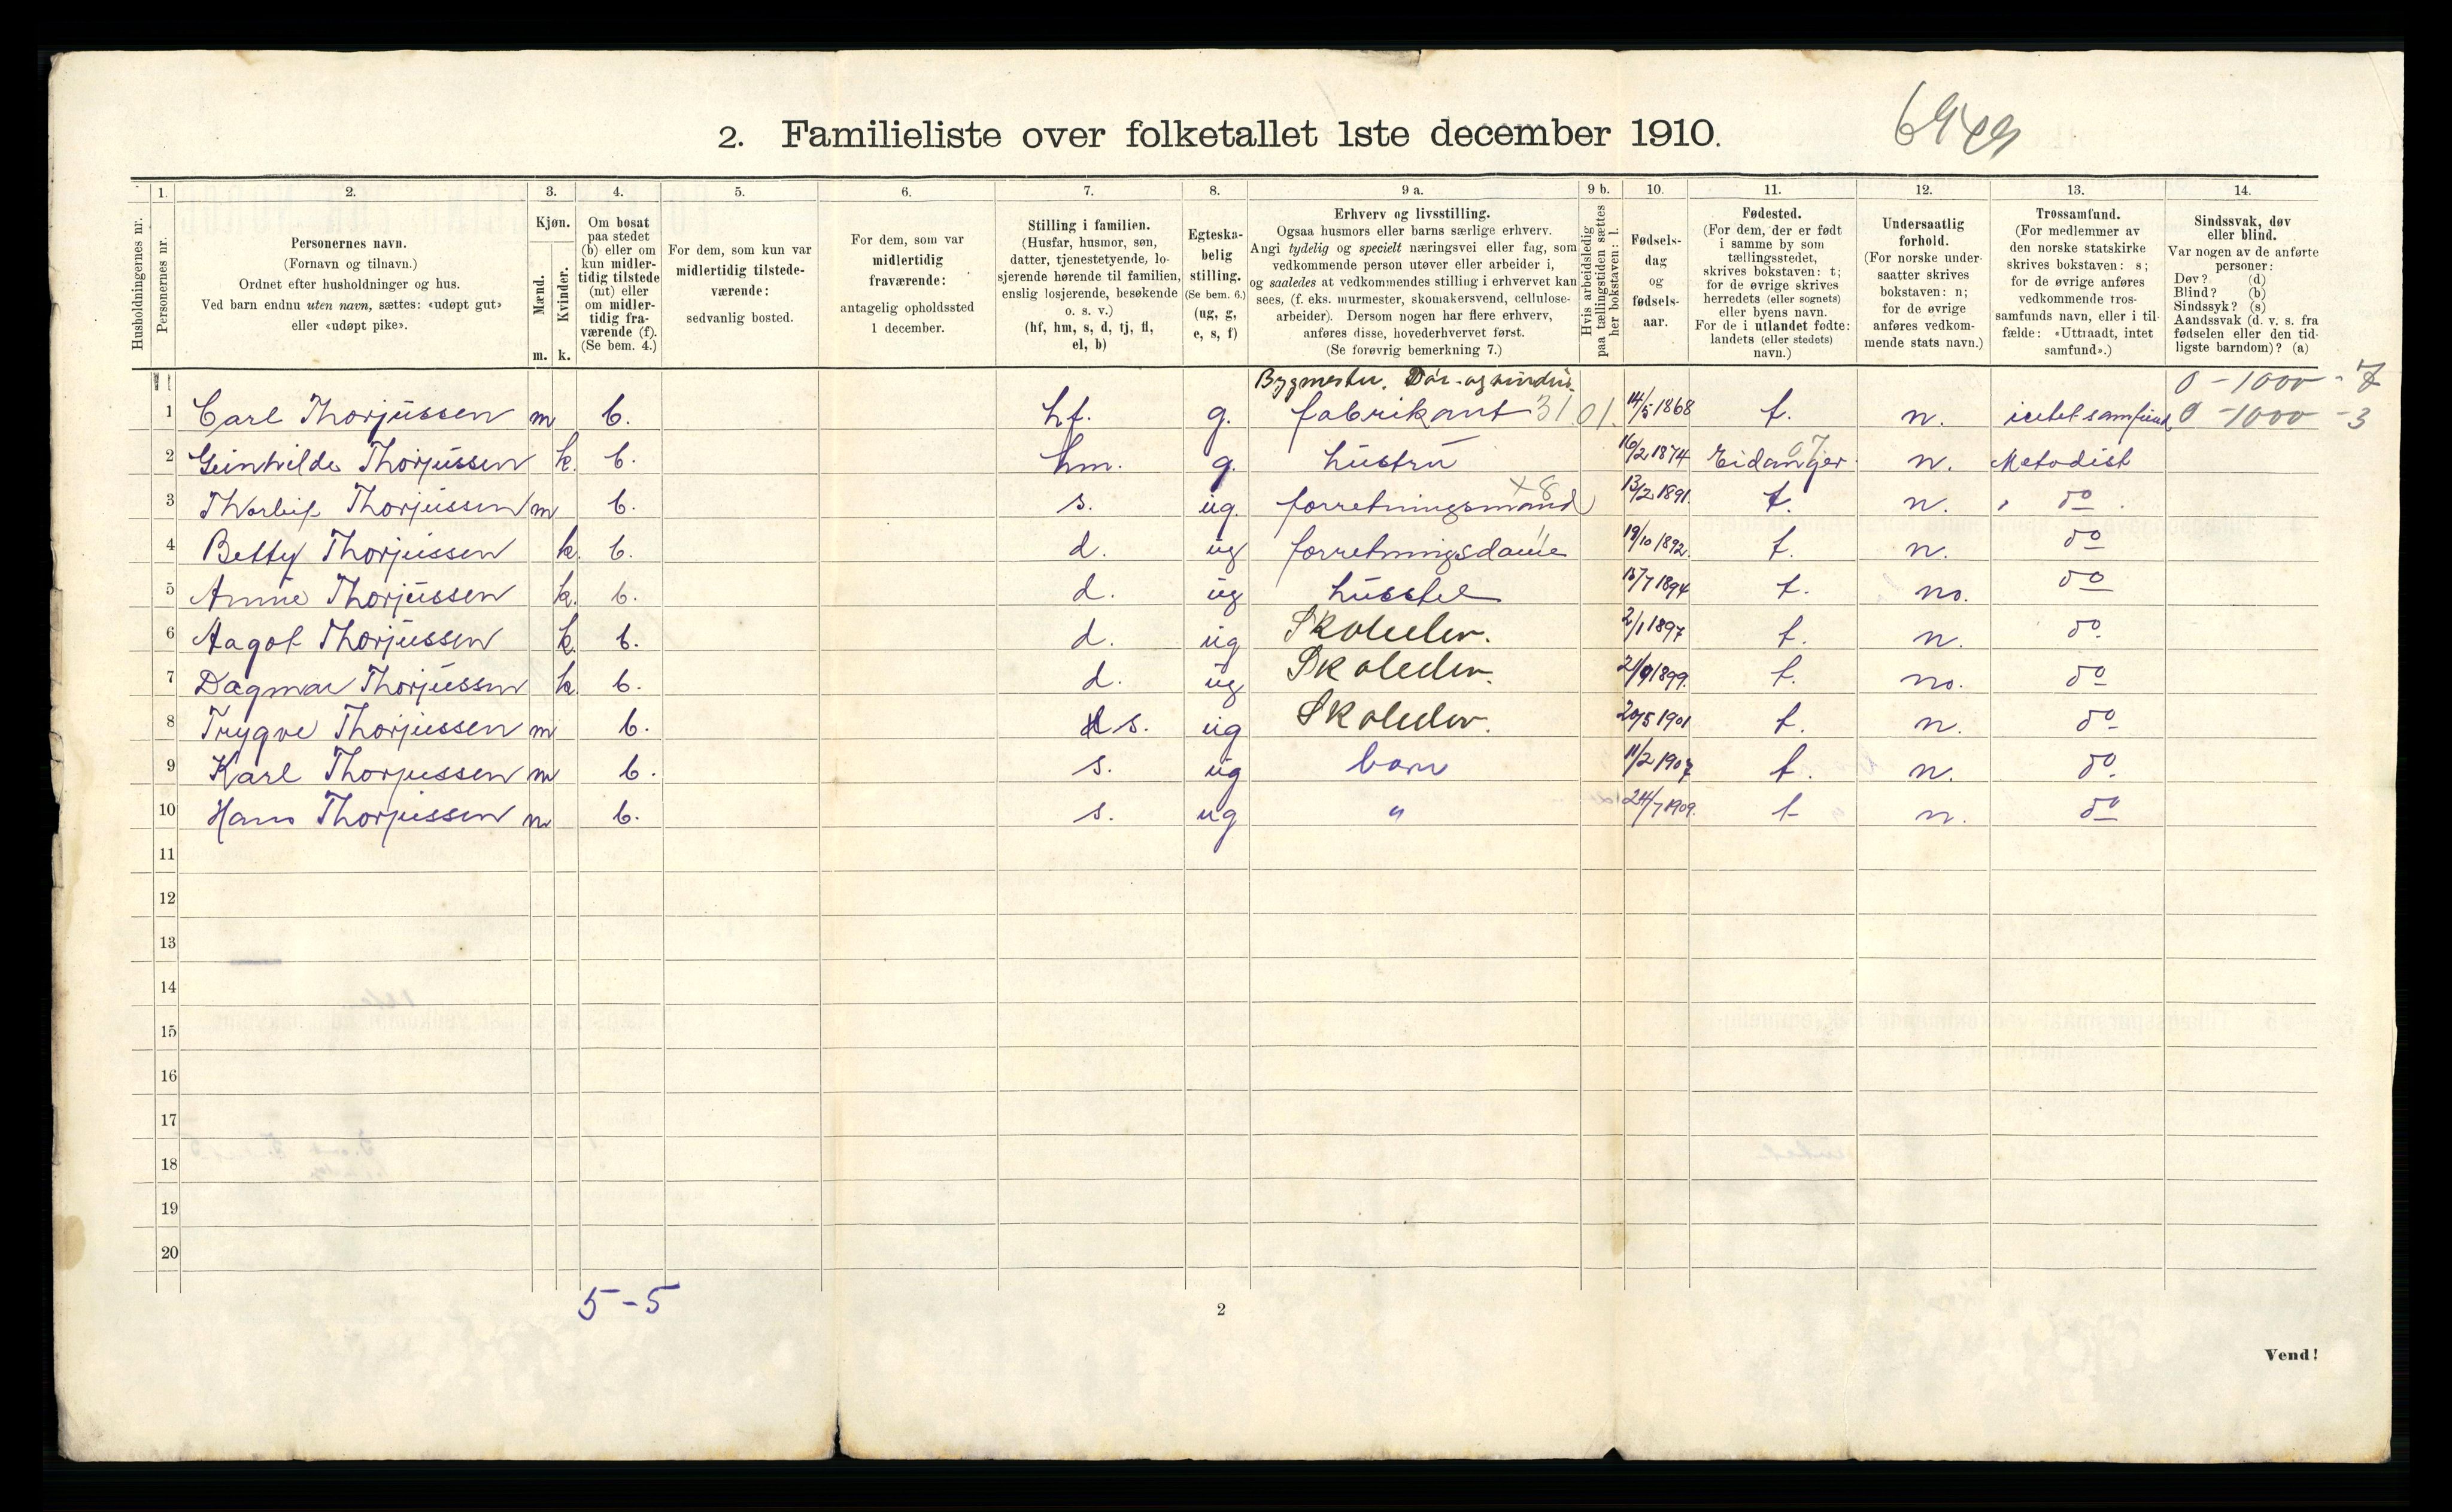 2. Familieliste over folketallet 1ste december 1910.
1. 2. 3. 4. 5. 6. 7. 8. 9 a. 9 b. 10. 11. 12. 13. 14.
Husholdningernes nr.
Personernes nr.
Personernes navn.
(Fornavn og tilnavn.)
Ordnet efter husholdninger og hus.
Ved barn endnu uten navn, sættes: «udøpt gut»
eller «udøpt pike».
Kjøn.
Mænd.
Kvinder.
m. k.
Om bosat
paa stedet
(b) eller om
kun midler-
tidig tilstede
(mt) eller
om midler-
tidig fra-
værende (f).
(Se bem. 4.)
For dem, som kun var
midlertidig tilstede-
værende:
sedvanlig bosted.
For dem, som var
midlertidig
fraværende:
antagelig opholdssted
1 december.
Stilling i familien.
(Husfar, husmor, søn,
datter, tjenestetyende, lo-
sjerende hørende til familien,
enslig losjerende, besøkende
o. s. v.)
(hf, hm, s, d, tj, fl,
el, b)
Egteska-
belig
stilling.
(Se bem. 6.)
(ug, g,
e, s, f)
Erhverv og livsstilling.
Ogsaa husmors eller barns særlige erhverv.
Angi tydelig og specielt næringsvei eller fag, som
vedkommende person utøver eller arbeider i,
og saaledes at vedkommendes stilling i erhvervet kan
sees, (f. eks. murmester, skomakersvend, cellulose-
arbeider). Dersom nogen har flere erhverv,
anføres disse, hovederhvervet først.
(Se forøvrig bemerkning 7.)
Hvis arbeidsledig
paa tællingstiden sættes
her bokstaven: l.
Fødsels-
dag
og
fødsels-
aar.
Fødested.
(For dem, der er født
i samme by som
tællingsstedet,
skrives bokstaven: t;
for de øvrige skrives
herredets (eller sognets)
eller byens navn.
For de i utlandet fødte:
landets (eller stedets)
navn.)
Undersaatlig
forhold.
(For norske under-
saatter skrives
bokstaven: n;
for de øvrige
anføres vedkom-
mende stats navn.)
Trossamfund.
(For medlemmer av
den norske statskirke
skrives bokstaven: s;
for de øvrige anføres
vedkommende tros-
samfunds navn, eller i til-
fælde: «Uttraadt, intet
samfund».)
Sindssvak, døv
eller blind.
Var nogen av de anførte
personer:
Døv? (d)
Blind? (b)
Sindssyk? (s)
Aandssvak (d. v. s. fra
fødselen eller den tid-
ligste barndom)? (a)
Bygmester. Dør- og vindu. 0 - 1000 - 7
1 Carl Thorjussen m b. hf. g. fabrikant 31 01. 14/5 1868 t. n. intet samfund 0 - 1000 - 3
2 Gunhilde Thorjussen k. b. hm. g. hustru 16/2 1874 Eidanger n. Metodist
3 Thorleif Thorjussen m b. s. ug. forretningsmand x8 13/2 1891. t. n. do
4 Betty Thorjussen k. b. d. ug forretningsdame 19/10 1892. t. n. do
5 Anne Thorjussen k. b. d. ug husstel 15/7 1894 t. no. do
6 Aagot Thorjussen k. b. d. ug Skoleelev. 2/1 1897 t. n. do
7 Dagmar Thorjussen k b. d. ug Skoleelev. 21/9 1899. t. no. do
8 Trygve Thorjussen m b. s. ug Skoleelev. 20/5 1901 t. n. do
9 Karl Thorjussen m b. s. ug barn 11/2 1907 t. n. do
10 Hans Thorjussen m b. s. ug " 24/7 1909. t n. do
11
12
13
14
15
16
17
18
19
20
5-5
2
Vend!